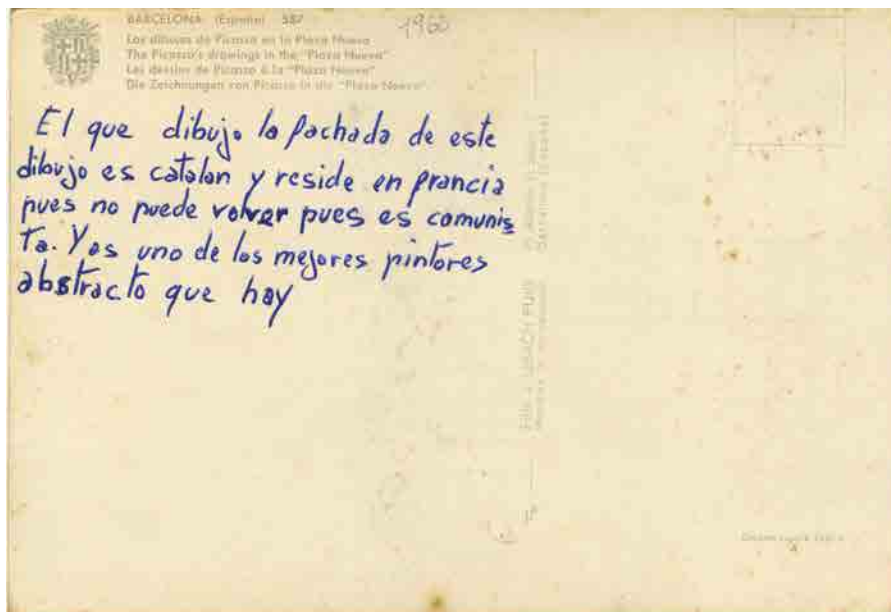 BARCELONA (España) 587
Los dibujos de Picasso en la Plaza Nueva
The Picasso's drawings in the "Plaza Nueva"
Les dessins de Picasso à la "Plaza Nueva"
Die Zeichnungen von Picasso in the "Plaza Nueva"
1960
El que dibujo la fachada de este
dibujo es catalan y reside en francia
pues no puede volver pues es comunis
ta. Y es uno de los mejores pintores
abstracto que hay